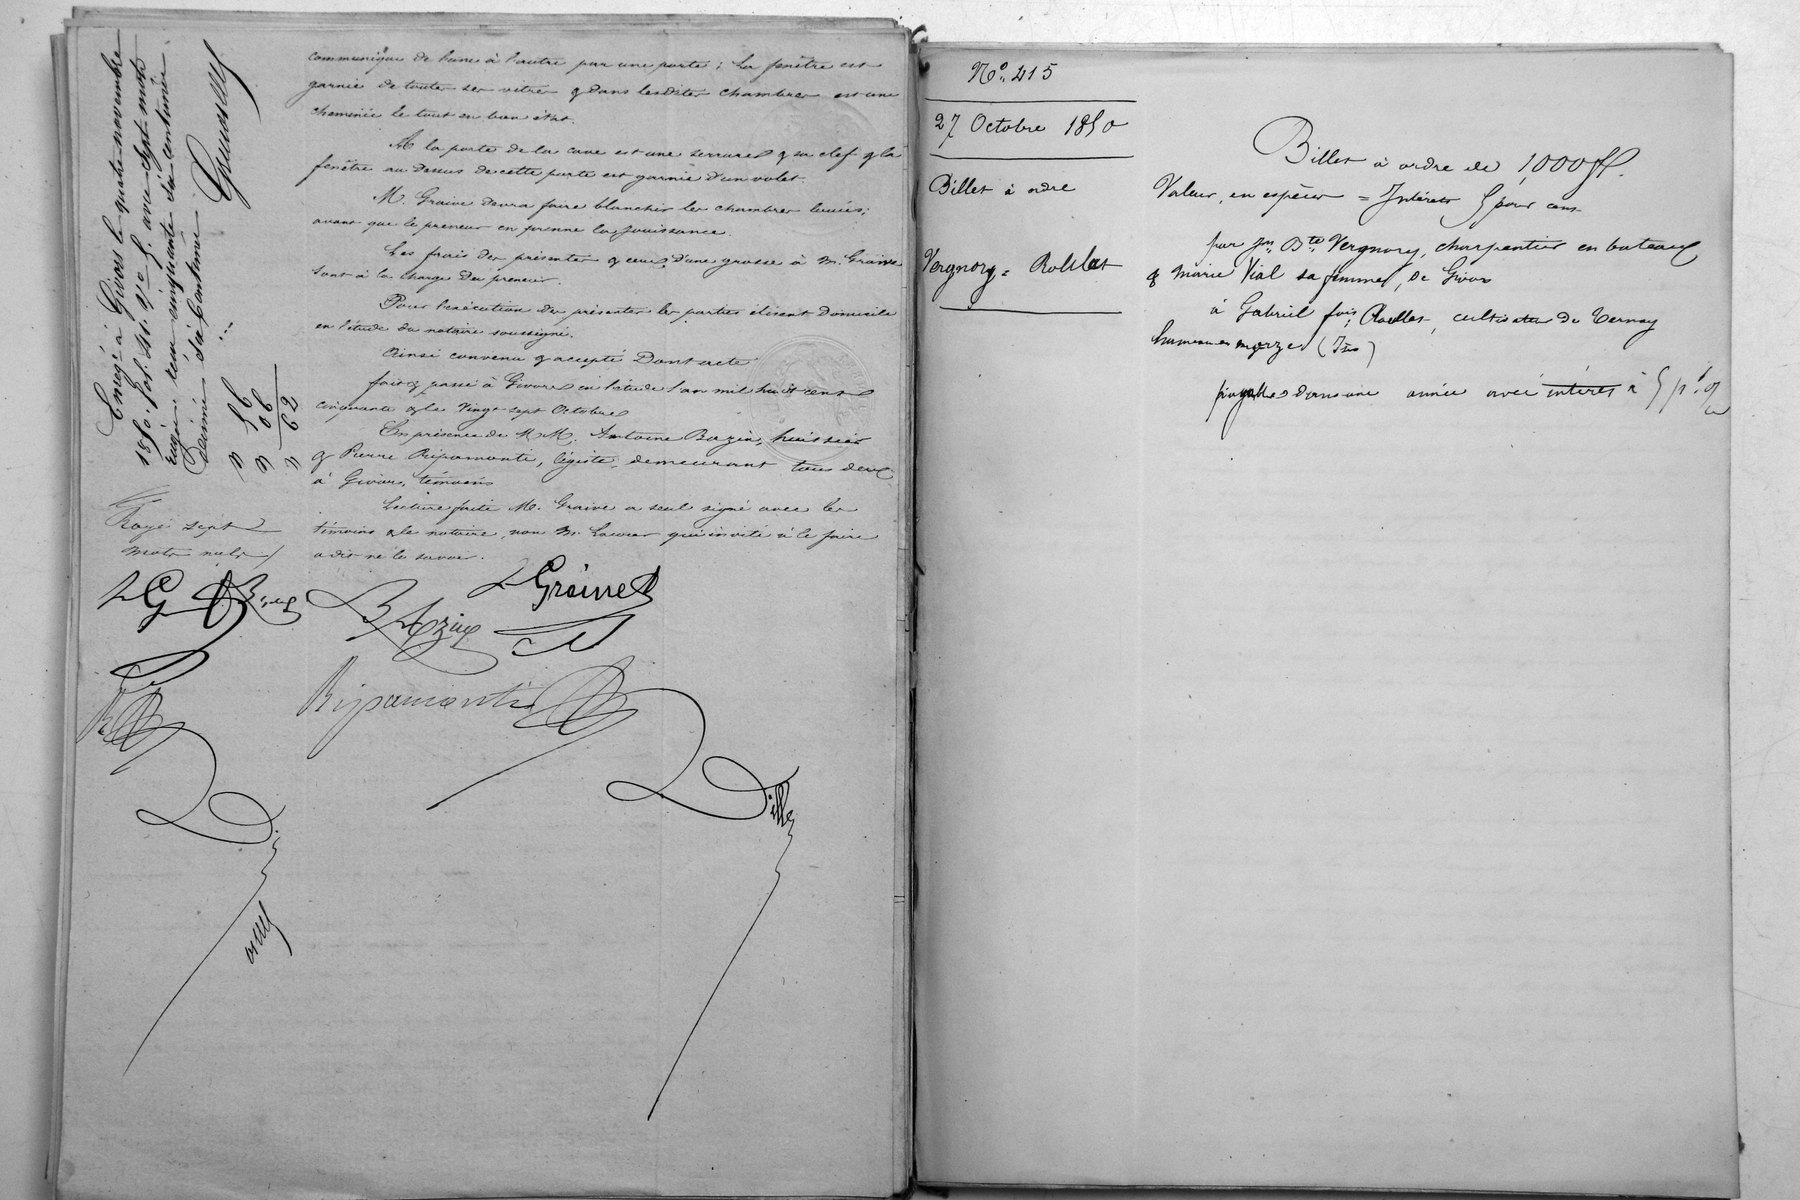 communique de l'une à l'autre par une porte ; La fenêtre est
garnie de toutes ses vitres & dans lesdites chambres est une
cheminée le tout en bon état.
A la porte de la cave est une serrure & sa clef & la
fenêtre au dessus de cette porte est garnie d'un volet.
M. Graive devra faire blanchir les chambres louées ;
avant que le preneur en prenne la jouissance.
Les frais des présentes & ceux d'une grosse à M. Graive
sont à la charge du preneur.
Pour l'exécution des présentes les parties élisent domicile
en l'étude du notaire soussigné.
Ainsi convenu & accepté Dont acte
fait & passé à Givors en l'étude l'an mil huit cent
cinquante & le Vingt-sept Octobre
En présence de M M. Antoine Bazin, huissier
& Pierre Ripamonti, légiste, demeurant tous deux
à Givors, témoins
Lecture faite M. Graive a seul signé avec les
témoins & le notaire, non M. qui invité à le faire
a dit ne le savoir.
Enreg. à Givors le quatre novembre
1850. fol. avec sept mots
reçu cinquante six centimes
Décime six centimes
56
06
62
Rayé sept
mots nuls
LG
L Graive
Bazin
Ripamonti
Dille
No. 415
27 Octobre 1850
Billet à ordre
Vergnory = Rollet
Billet à ordre de 1,000 f.
Valeur, en espèces = Intérêts 5 pour cent
par Jn Bte Vergnory, charpentier en bateaux
& Marie Vial sa femme, de Givors
à Gabriel fois Rollet, cultivateur de Ternay
hameau de (Isère)
payable dans une année avec intérêt à 5 p. %